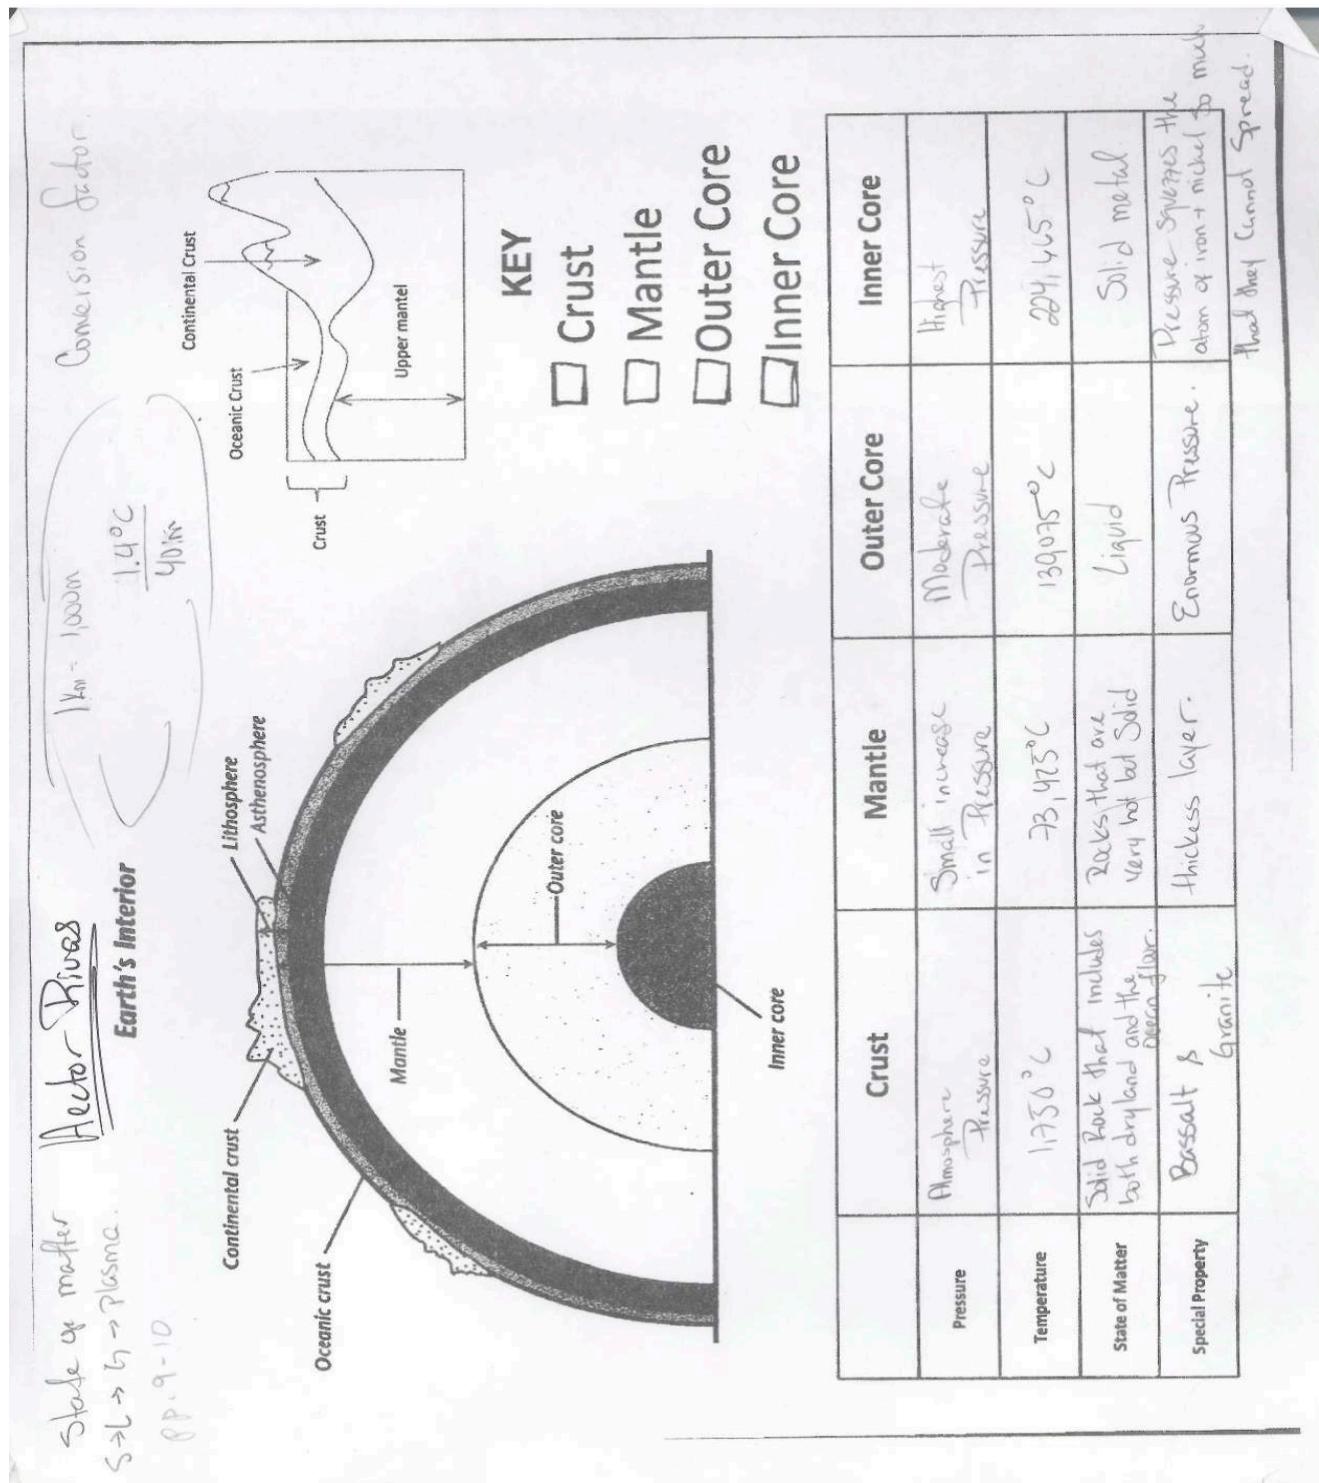 State of matter
S→L→G→Plasma.
pp. 9-10
Hector Rivas
Earth's Interior
1km - 1,000m
1.4°C
40m
Conversion factor.
Continental crust
Oceanic crust
Lithosphere
Asthenosphere
Mantle
Outer core
Inner core
Crust
Oceanic Crust
Continental Crust
Upper mantel
KEY
Crust
Mantle
Outer Core
Inner Core
Crust Mantle Outer Core Inner Core
Pressure
Atmosphere
Pressure
Small increase
in Pressure
Moderate
Pressure
Highest
Pressure
Temperature 1,750°C 73,425°C 139,075°C 224,465°C
State of Matter
Solid Rock that includes
both dryland and the
ocean floor.
Rocks that are
very hot but Solid
Liquid
Solid metal.
Special Property
Bassalt &
Granite
thickess layer.
Enormous Pressure.
Pressure squezzes the
atom of iron + nickel so much
that they Cannot Spread.